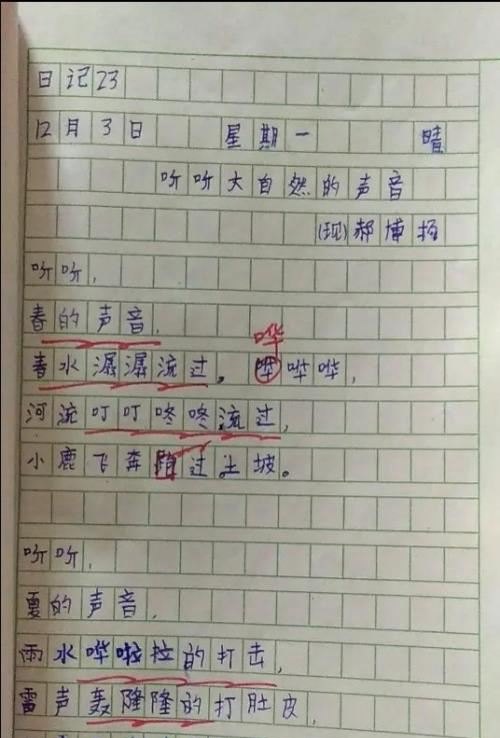 日记23
12月3日 星期一 晴
听听大自然的声音
(现)郝博扬
听听,
春的声音,
哗
春水潺潺流过。哗哗哗,
河流叮叮咚咚流过,
小鹿飞奔跑过土坡。
听听,
夏的声音,
雨水哗啦拉的打击,
雷声轰隆隆的打肚皮,